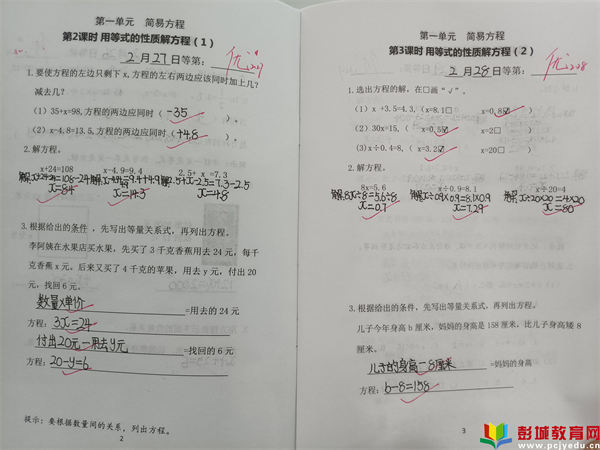 第一单元 简易方程
第2课时 用等式的性质解方程(1)
2月27日等第: 优
1.要使方程的左边只剩下 x,方程的左右两边应该同时加上几?
减去几?
(1)35+x=98,方程的两边应同时( -35 )。
(2)x-4.8=13.5,方程的两边应同时( +4.8 )。
2.解方程。
x+24=108 x-4.9=9.4 2.5+x=7.3
解:x+24-24=108-24 解:x-4.9+4.9=9.4+4.9 解:2.5+x-2.5=7.3-2.5
x=84 x=14.3 x=4.8
3.根据给出的条件,先写出等量关系式,再列出方程。
李阿姨在水果店买水果,先买了 3 千克香蕉用去 24 元,每千
克香蕉 x 元,后来又买了 4 千克的苹果,用去 y 元,付出 20
元,找回 6 元。
数量×单价=用去的 24 元
方程:3x=24
付出20元-用去y元=找回的 6 元
方程:20-y=6
提示:要根据数量间的关系,列出方程。
2
第一单元 简易方程
第3课时 用等式的性质解方程(2)
2月28日等第: 优
1.选出方程的解,在□画“√”。
(1)x+3.5=4.3,(x=8.1□ x=0.8☑)
(2)30x=15,(x=0.5☑ x=2□)
(3)x÷0.4=8,(x=3.2☑ x=20□)
2.解方程。
8x=5.6 x÷0.9=8.1 x÷20=4
解:8x÷8=5.6÷8 解:x÷0.9×0.9=8.1×0.9 解:x÷20×20=4×20
x=0.7 x=7.29 x=80
3.根据给出的条件,先写出等量关系式,再列出方程。
儿子今年身高 b 厘米,妈妈的身高是 158 厘米,比儿子身高矮 8
厘米。
儿子的身高-8厘米=妈妈的身高
方程:b-8=158
3
彭城教育网
www.pcjyedu.cn